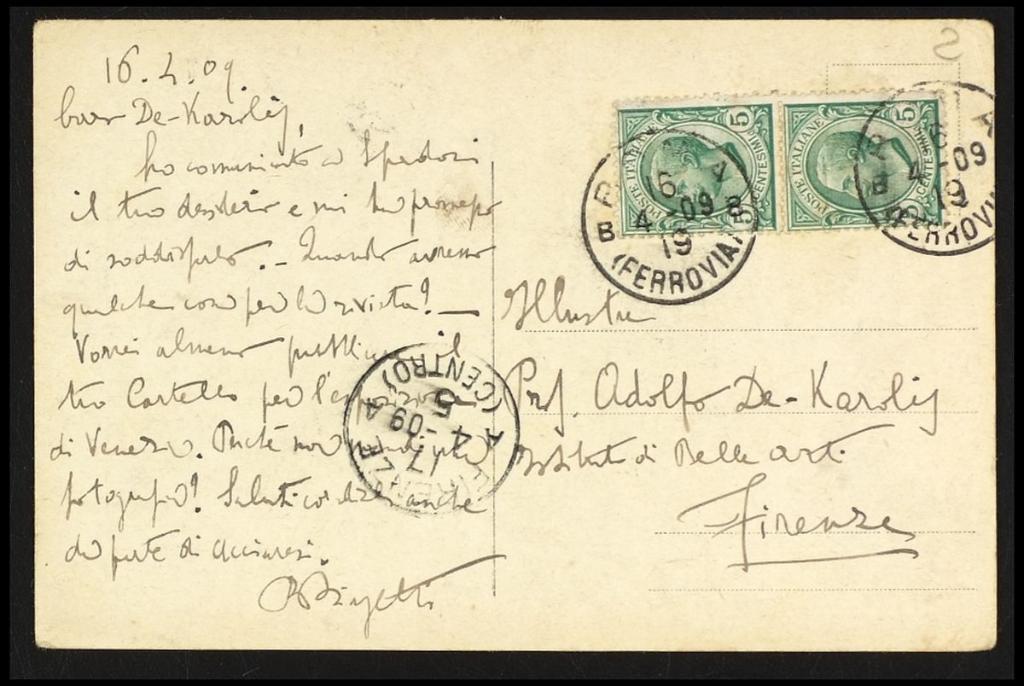 16.4.09
Caro De-Karolis,
ho comunicato a Spadoni
il tuo desiderio e mi ha promesso
di soddisfarlo. - Quando avremo
qualche cosa per la rivista? -
Vorrei almeno pubblicare il
tuo Cartello per l'esposizione
di Venezia. Perché non mandi una
fotografia? Saluti cordiali anche
da parte di
POSTE ITALIANE
5
CENTESIMI 5
POSTE ITALIANE
5
CENTESIMI 5
16
B 4-09 8
19
(FERROVIA)
R A
16
B 4-09
19
(FERROVIA
FIRENZE
17
A 4-09 A
5
(CENTRO)
Illustre
Prof. Adolfo De-Karolis
Istituto di Belle arti
Firenze